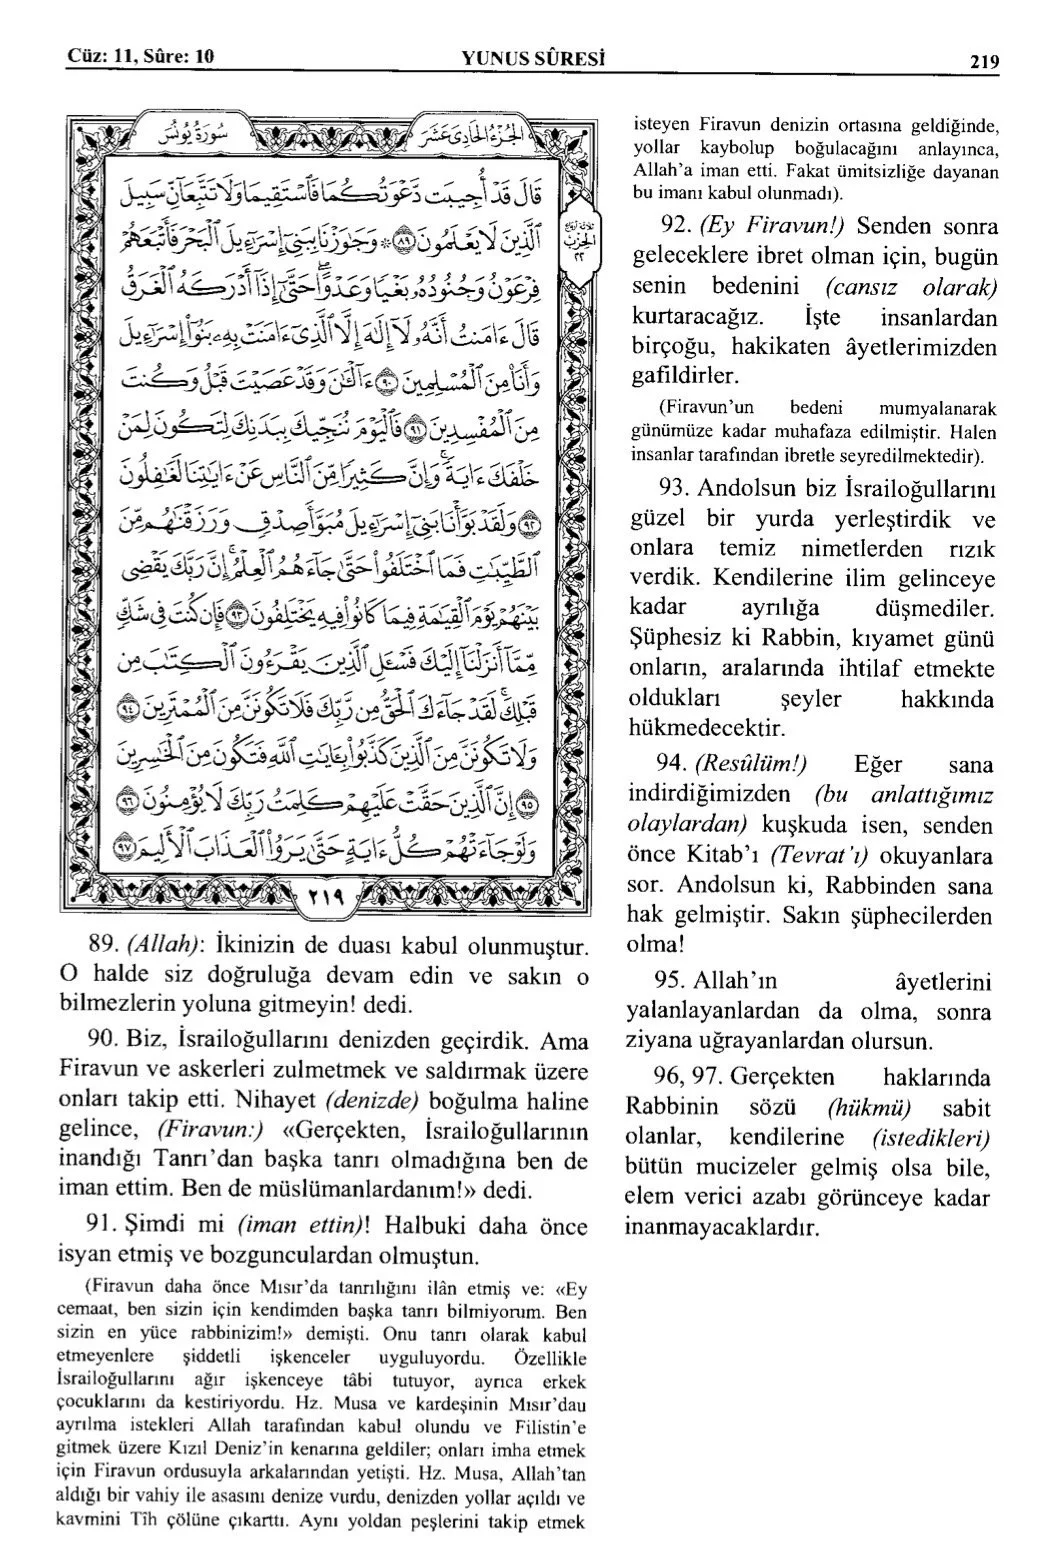 Cüz: 11, Sûre: 10
YUNUS SÛRESİ
219
سورة يونس
الجزء الحادى عشر
قَالَ قَدْ أُجِيبَت دَّعْوَتُكُمَا فَاسْتَقِيمَا وَلَا تَتَّبِعَانِّ سَبِيلَ
الَّذِينَ لَا يَعْلَمُونَ ٨٩ * وَجَاوَزْنَا بِبَنِي إِسْرَائِيلَ الْبَحْرَ فَأَتْبَعَهُمْ
فِرْعَوْنُ وَجُنُودُهُ بَغْيًا وَعَدْوًا حَتَّى إِذَا أَدْرَكَهُ الْغَرَقُ
قَالَ ءَامَنتُ أَنَّهُ لَا إِلَهَ إِلَّا الَّذِي ءَامَنَتْ بِهِ بَنُوا إِسْرَائِيلَ
وَأَنَا مِنَ الْمُسْلِمِينَ ٩٠ ءَالْـَٔنَ وَقَدْ عَصَيْتَ قَبْلُ وَكُنتَ
مِنَ الْمُفْسِدِينَ ٩١ فَالْيَوْمَ نُنَجِّيكَ بِبَدَنِكَ لِتَكُونَ لِمَنْ
خَلْفَكَ ءَايَةً وَإِنَّ كَثِيرًا مِّنَ النَّاسِ عَنْ ءَايَاتِنَا لَغَافِلُونَ
٩٢ وَلَقَدْ بَوَّأْنَا بَنِي إِسْرَائِيلَ مُبَوَّأَ صِدْقٍ وَرَزَقْنَاهُم مِّنَ
الطَّيِّبَاتِ فَمَا اخْتَلَفُوا حَتَّى جَاءَهُمُ الْعِلْمُ إِنَّ رَبَّكَ يَقْضِي
بَيْنَهُمْ يَوْمَ الْقِيَامَةِ فِيمَا كَانُوا فِيهِ يَخْتَلِفُونَ ٩٣ فَإِن كُنتَ فِي شَكٍّ
مِّمَّا أَنزَلْنَا إِلَيْكَ فَسْـَٔلِ الَّذِينَ يَقْرَءُونَ الْكِتَابَ مِن
قَبْلِكَ لَقَدْ جَاءَكَ الْحَقُّ مِن رَّبِّكَ فَلَا تَكُونَنَّ مِنَ الْمُمْتَرِينَ ٩٤
وَلَا تَكُونَنَّ مِنَ الَّذِينَ كَذَّبُوا بِـَٔايَاتِ اللَّهِ فَتَكُونَ مِنَ الْخَاسِرِينَ
٩٥ إِنَّ الَّذِينَ حَقَّتْ عَلَيْهِمْ كَلِمَتُ رَبِّكَ لَا يُؤْمِنُونَ ٩٦
وَلَوْ جَاءَتْهُمْ كُلُّ ءَايَةٍ حَتَّى يَرَوُا الْعَذَابَ الْأَلِيمَ ٩٧
٢١٩
89. (Allah): İkinizin de duası kabul olunmuştur.
O halde siz doğruluğa devam edin ve sakın o
bilmezlerin yoluna gitmeyin! dedi.
90. Biz, İsrailoğullarını denizden geçirdik. Ama
Firavun ve askerleri zulmetmek ve saldırmak üzere
onları takip etti. Nihayet (denizde) boğulma haline
gelince, (Firavun:) «Gerçekten, İsrailoğullarının
inandığı Tanrı’dan başka tanrı olmadığına ben de
iman ettim. Ben de müslümanlardanım!» dedi.
91. Şimdi mi (iman ettin)! Halbuki daha önce
isyan etmiş ve bozgunculardan olmuştun.
(Firavun daha önce Mısır’da tanrılığını ilân etmiş ve: «Ey
cemaat, ben sizin için kendimden başka tanrı bilmiyorum. Ben
sizin en yüce rabbinizim!» demişti. Onu tanrı olarak kabul
etmeyenlere şiddetli işkenceler uyguluyordu. Özellikle
İsrailoğullarını ağır işkenceye tâbi tutuyor, ayrıca erkek
çocuklarını da kestiriyordu. Hz. Musa ve kardeşinin Mısır’dau
ayrılma istekleri Allah tarafından kabul olundu ve Filistin’e
gitmek üzere Kızıl Deniz’in kenarına geldiler; onları imha etmek
için Firavun ordusuyla arkalarından yetişti. Hz. Musa, Allah’tan
aldığı bir vahiy ile asasını denize vurdu, denizden yollar açıldı ve
kavmini Tîh çölüne çıkarttı. Aynı yoldan peşlerini takip etmek
isteyen Firavun denizin ortasına geldiğinde,
yollar kaybolup boğulacağını anlayınca,
Allah’a iman etti. Fakat ümitsizliğe dayanan
bu imanı kabul olunmadı).
92. (Ey Firavun!) Senden sonra
geleceklere ibret olman için, bugün
senin bedenini (cansız olarak)
kurtaracağız. İşte insanlardan
birçoğu, hakikaten âyetlerimizden
gafildirler.
(Firavun’un bedeni mumyalanarak
günümüze kadar muhafaza edilmiştir. Halen
insanlar tarafından ibretle seyredilmektedir).
93. Andolsun biz İsrailoğullarını
güzel bir yurda yerleştirdik ve
onlara temiz nimetlerden rızık
verdik. Kendilerine ilim gelinceye
kadar ayrılığa düşmediler.
Şüphesiz ki Rabbin, kıyamet günü
onların, aralarında ihtilaf etmekte
oldukları şeyler hakkında
hükmedecektir.
94. (Resûlüm!) Eğer sana
indirdiğimizden (bu anlattığımız
olaylardan) kuşkuda isen, senden
önce Kitab’ı (Tevrat’ı) okuyanlara
sor. Andolsun ki, Rabbinden sana
hak gelmiştir. Sakın şüphecilerden
olma!
95. Allah’ın âyetlerini
yalanlayanlardan da olma, sonra
ziyana uğrayanlardan olursun.
96, 97. Gerçekten haklarında
Rabbinin sözü (hükmü) sabit
olanlar, kendilerine (istedikleri)
bütün mucizeler gelmiş olsa bile,
elem verici azabı görünceye kadar
inanmayacaklardır.